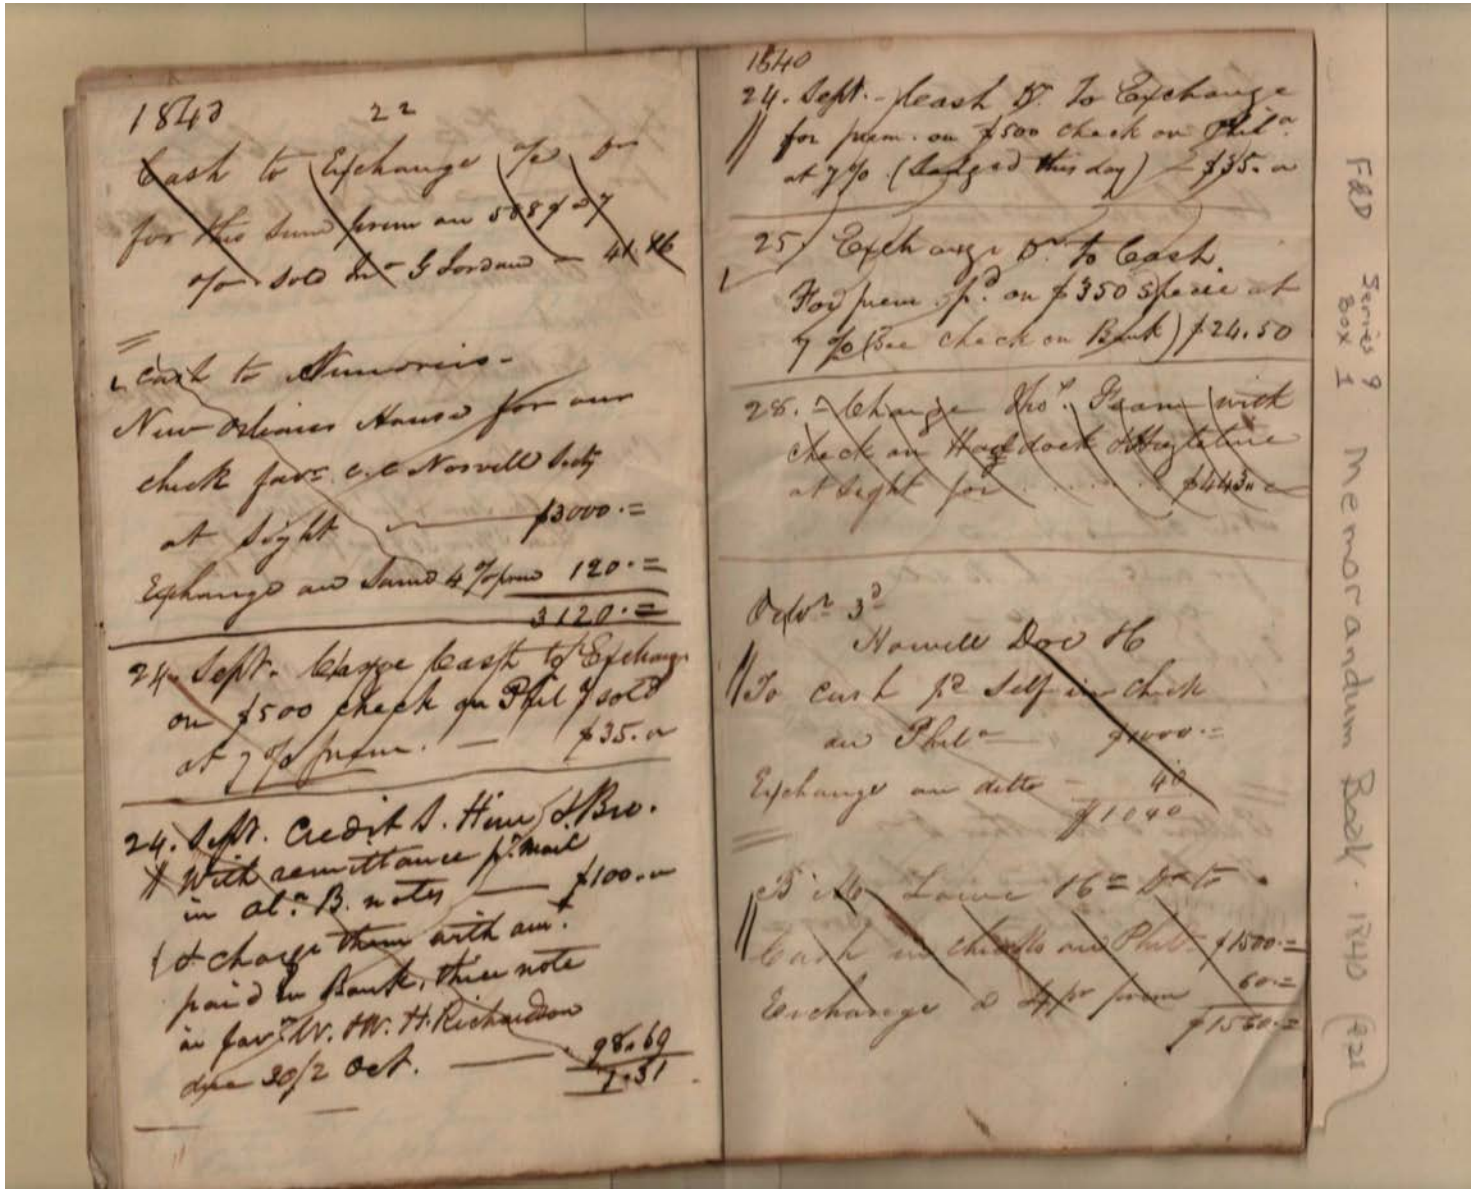 1840 22
Cash to Exchange % Dr
for this sum prem on 588 @ 7
% sold Mr G Jordan — 41.16
Cash to Memories -
New Orleans House for our
check favr. C. C Norvell Secty
at sight — $3000.=
Exchange on same 4 % prem 120.=
3120.=
24. Sept. Charge Cash to Exchange
on $500 check on Phila sold
at 7 % prem. — $35.00
24. Sept. Credit S. Hine & Bro.
With remittance pr. mail
in Ala. B. notes — $100.00
& charge them with amt.
paid in Bank, their note
in favr. W. & W. H. Richardson
due 30/2 Oct. — 98.69
1.31
1840
24. Sept. - Cash Dr. To Exchange
for prem. on $500 check on Phila.
at 7 % (lodged this day) - $35.00
25 Exchange Dr. To Cash.
For prem. pd. on $350 specie at
7 % (see check on Bank) $24.50
28. - Charge Thos. with
check on Haddock
at sight for . . . . . . $443.00
Octor 3d
Howell Dor H
To cash pd Self in check
on Phila — " $1000.=
Exchange on ditto - 40
$1040
Lowe H= Dr to
Cash in checks on Phila. $1500.=
Exchange @ 4 pr prem 60.=
$1560.=
F&D Series 9 Memorandum Book. 1840 (P21
Box 1